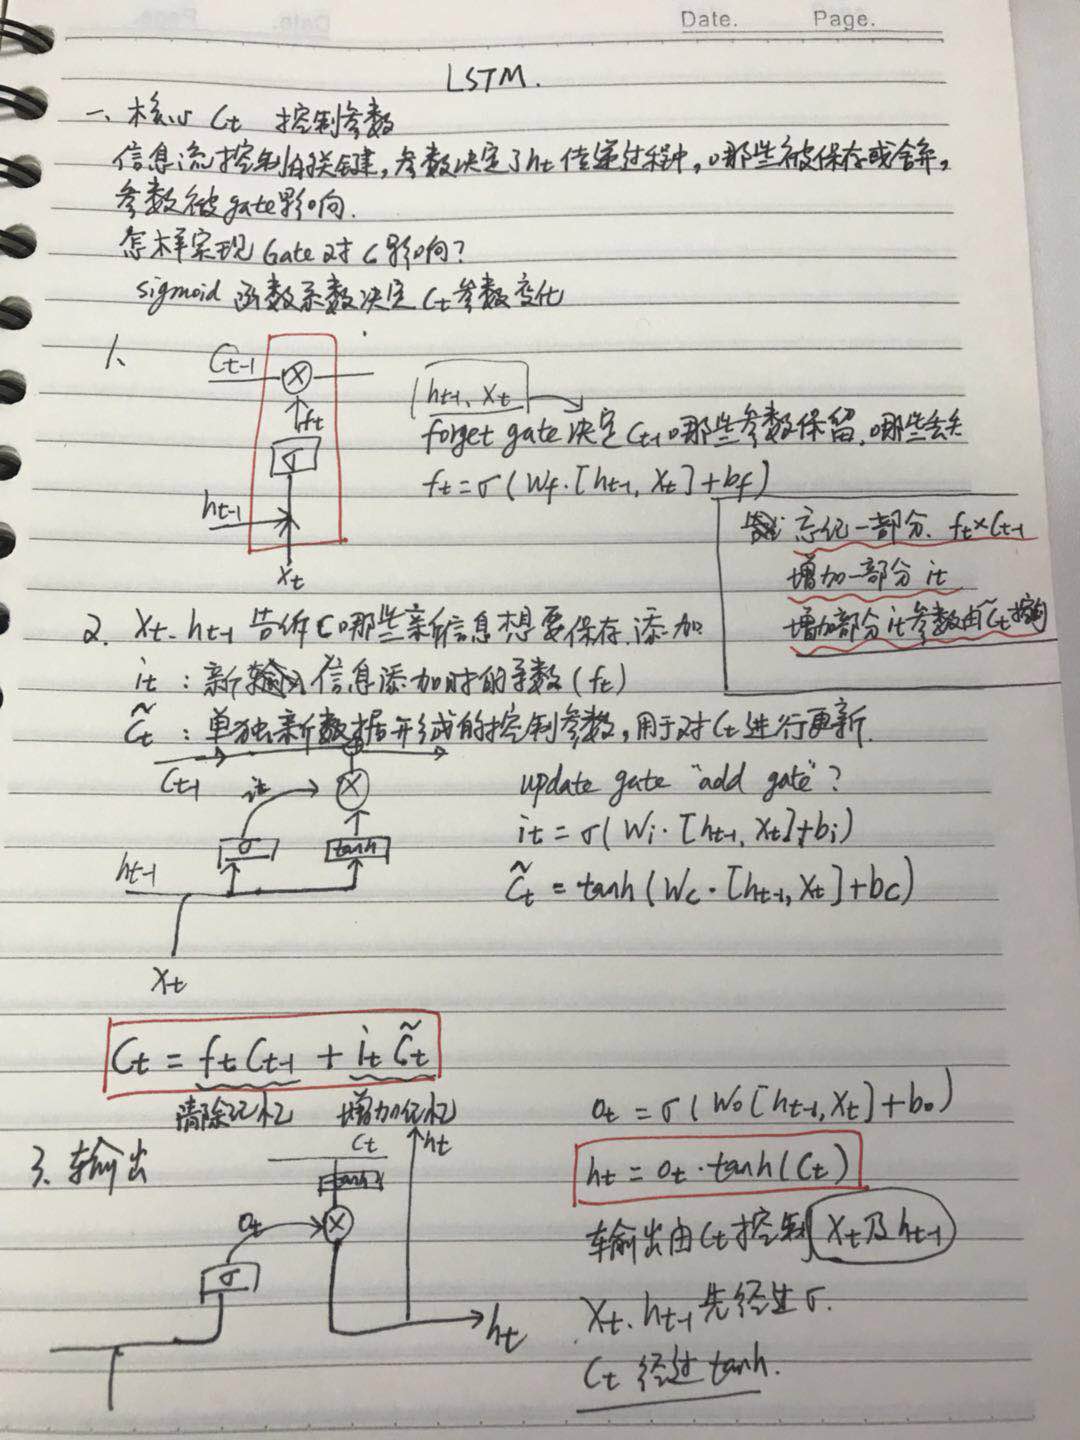 Date.    Page.
LSTM.
一、核心 Ct 控制参数
信息流控制的关键,参数决定了ht传递过程中,哪些被保存或舍弃,
参数被gate影响.
怎样实现 Gate 对 C 影响?
sigmoid 函数系数决定 Ct 参数变化
1、
Ct-1
×
ft
σ
ht-1
xt
ht-1, Xt
forget gate 决定 Ct-1 哪些参数保留,哪些丢失
ft = σ(Wf·[ht-1, Xt]+bf)
忘记一部分. ft×Ct-1
增加一部分 it
增加部分 it 参数由 C̃t 控制
2、Xt、ht-1 告诉C哪些新信息想要保存、添加
it : 新输入信息添加时的系数(ft)
C̃t : 单独新数据形成的控制参数,用于对Ct进行更新.
Ct-1
it
×
σ
tanh
ht-1
Xt
update gate "add gate"?
it = σ(Wi·[ht-1, Xt]+bi)
C̃t = tanh(Wc·[ht-1, Xt]+bc)
Ct = ft Ct-1 + it C̃t
清除记忆 增加记忆
3、输出
Ct
ht
tanh
ot
×
σ
ht
ot = σ(Wo[ht-1, Xt]+bo)
ht = ot·tanh(Ct)
输出由Ct控制 Xt及ht-1
Xt、ht-1 先经过 σ.
Ct 经过 tanh.